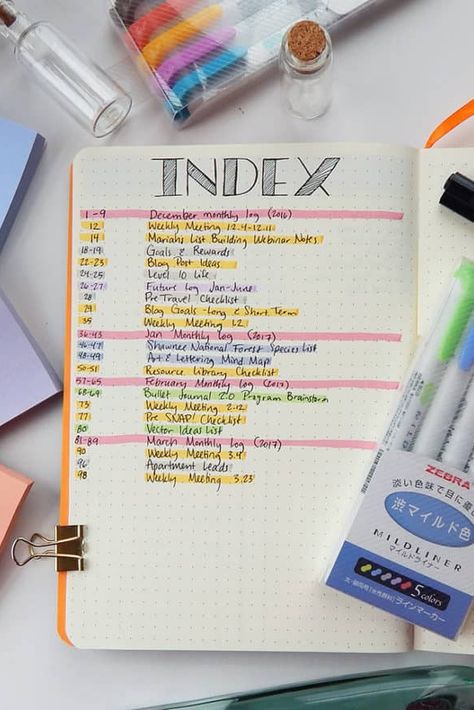 INDEX
1-9 December monthly log (2016)
12 Weekly Meeting 12.4-12.11
14 Mariahs List Building Webinar Notes
18-19 Goals & Rewards
22-23 Blog Post Ideas
24-25 Level 10 Life
26-27 Future Log Jan-June
28 Pre Travel Checklist
29 Blog Goals - Long & Short Term
35 Weekly Meeting 1.2
36-43 Jan Monthly log (2017)
46-47 Shawnee National Forest Species List
48-49 Art & Lettering Mind Map
50-51 Resource Library Checklist
57-65 February Monthly log (2017)
68-69 Bullet Journal 2.0 Program Brainstorm
73 Weekly Meeting 2-12
77 Pre SNAP! Checklist
80 Vector Ideas List
81-89 March Monthly log (2017)
90 Weekly Meeting 3.4
96 Apartment Leads
98 Weekly Meeting 3.23
ZEBRA
淡い色味で目に
渋マイルド色
MILDLINER
マイルドライナー
5 colors
ラインマーカー